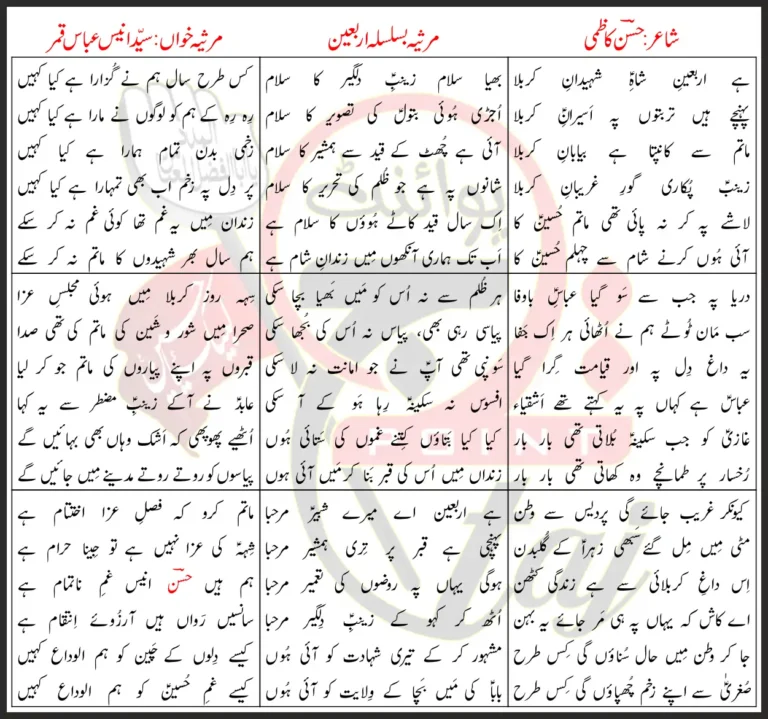 شاعر: حسنؔ کاظمی
مرثیہ بسلسلہ اربعین
مرثیہ خواں: سیّد انیس عباس قمر
ہے اربعینِ شاہِؑ شہیدانِ کربلا
پہنچے ہیں تربتوں پہ اَسیرانِؑ کربلا
ماتم سے کانپتا ہے بیابانِ کربلا
زینبؑ پُکاری گورِ غریبانِ کربلا
لاشے پہ کر نہ پائی تھی ماتم حُسینؑ کا
آئی ہُوں کرنے شام سے چہلم حُسینؑ کا
بھیا سلام زینبِؑ دِلگیر کا سلام
اُجڑی ہُوئی بتولؑ کی تصویر کا سلام
آئی ہے چُھٹ کے قید سے ہمشیر کا سلام
شانوں پہ ہے جو ظُلم کی تحریر کا سلام
اِک سال قید کاٹے ہُوؤں کا سلام ہے
اَب تک ہماری آنکھوں مِیں زندانِ شام ہے
کس طرح سال ہم نے گُزارا ہے کیا کہیں
رِہ رِہ کے ہم کو لوگوں نے مارا ہے کیا کہیں
زخمی بدن تمام ہمارا ہے کیا کہیں
پر دِل پہ زخم اب بھی تمہارا ہے کیا کہیں
زندان مِیں یہ غم تھا کوئی غم نہ کر سکے
ہم سال بھر شہیدوں کا ماتم نہ کر سکے
دریا پہ جب سے سَو گیا عباسؑ باوفا
سب مَان ٹُوٹے ہم نے اُٹھائی ہر اِک جَفا
یہ داغ دِل پہ اور قیامت گِرا گیا
عباسؑ ہے کہاں پہ یہ کہتے تھے اَشقیاء
غازیؑ کو جب سکینہؑ بُلاتی تھی بار بار
رُخسار پر طمانچے وہ کھاتی تھی بار بار
ہر ظُلم سے نہ اُس کو مَیں بَھیا بچا سکی
پیاسی رہی بھی، پیاس نہ اُس کی بُجھا سکی
سَونپی تھی آپؑ نے جو امانت نہ لا سکی
افسوس نہ سکینہؑ رِہا ہو کے آ سکی
کیا کیا بتاؤں کِتنے غموں کی ستائی ہُوں
زنداں مِیں اُس کی قبر بَنا کر مَیں آئی ہوں
سِہہ روز کربلا مِیں ہوئی مجلسِ عزا
صحرا مِیں شور و شَین کی ماتم کی تھی صدا
قبروں پہ اپنے پیاروں کی ماتم جو کر لیا
عابدؑ نے آ کے زینبِؑ مضطر سے یہ کہا
اُٹھیے پھوپھی کہ اَشک وہاں بھی بہائیں گے
پیاسوں کو روتے روتے مدینے مِیں جائیں گے
کیونکر غریب جائے گی پردیس سے وطن
مٹی مِیں مِل گئے سَبھی زہراؑ کے گُلبدن
اِس داغِ کربلائی سے ہے زندگی کٹھن
اے کاش کہ یہاں پہ ہی مَر جائے یہ بہن
جا کر وطن مِیں حال سُناؤں گی کِس طرح
صُغریٰؑ سے اپنے زخم چُھپاؤں گی کِس طرح
ہے اربعین اے میرے شبیرؑ مرحبا
پہنچی ہے قبر پر تِری ہمشیر مرحبا
ہوگی یہاں پہ روضوں کی تعمیر مرحبا
اُٹھ کر کہو کے زینبِؑ دِلگیر مرحبا
مشہور کر کے تیری شہادت کو آئی ہُوں
باباؑ کی مَیں بَچا کے وِلایت کو آئی ہُوں
ماتم کرو کہ فصلِ عزا اختتام ہے
شِہہؑ کی عزا نہیں ہے تو جِینا حرام ہے
ہم ہیں حسنؔ انیس غمِ ناتمام ہے
سانسیں رَواں ہیں آرزُوئے اِنتقام ہے
کیسے دِلوں کے چَین کو ہم الوداع کہیں
کیسے غمِ حُسینؑ کو ہم الوداع کہیں
پوائنٹ
POINT
taj